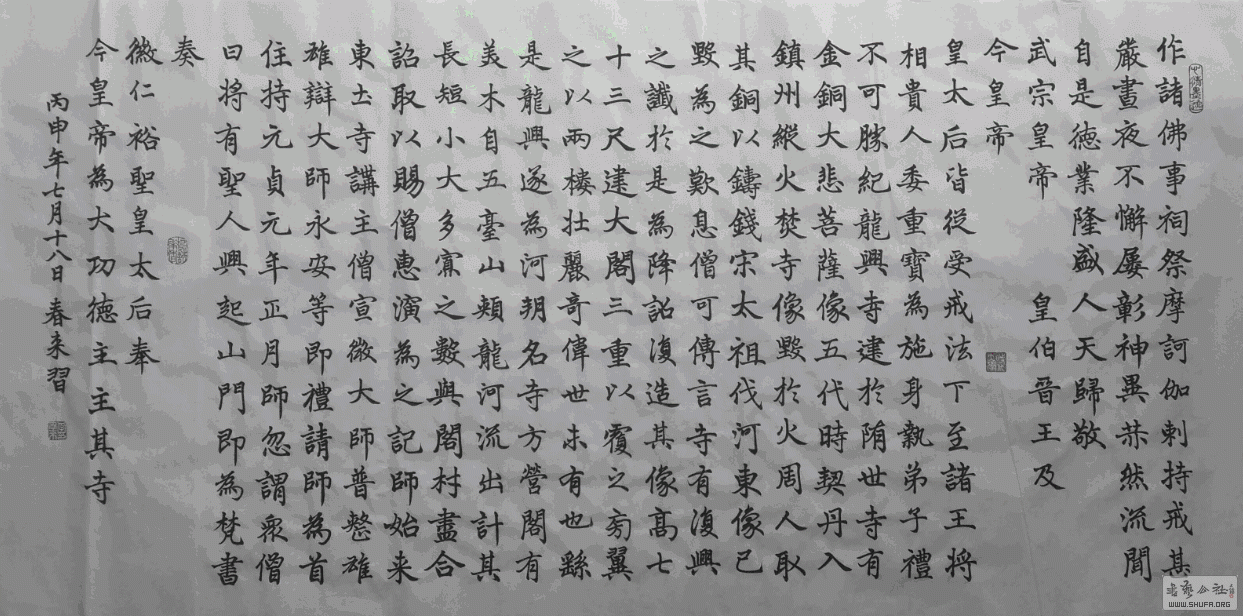 作諸佛事祠祭摩訶伽剌持戒甚
嚴晝夜不懈屢彰神異赫然流聞
自是德業隆盛人天歸敬
武宗皇帝 皇伯晉王及
今皇帝
皇太后皆從受戒法下至諸王將
相貴人委重寶為施身執弟子禮
不可勝紀龍興寺建於隋世寺有
金銅大悲菩薩像五代時契丹入
鎮州縱火焚寺像毀於火周人取
其銅以鑄錢宋太祖伐河東像已
毀為之歎息僧可傳言寺有復興
之讖於是為降詔復造其像高七
十三尺建大閣三重以覆之旁翼
之以兩樓壯麗奇偉世未有也繇
是龍興遂為河朔名寺方營閣有
美木自五臺山頰龍河流出計其
長短小大多寡之數與閣材盡合
詔取以賜僧惠演為之記師始来
東土寺講主僧宣微大師普整雄
雄辯大師永安等即禮請師為首
住持元貞元年正月師忽謂衆僧
曰將有聖人興起山門即為梵書
奏
徽仁裕聖皇太后奉
今皇帝為大功德主主其寺
丙申年七月十八日春来習
WWW.SHUFA.ORG